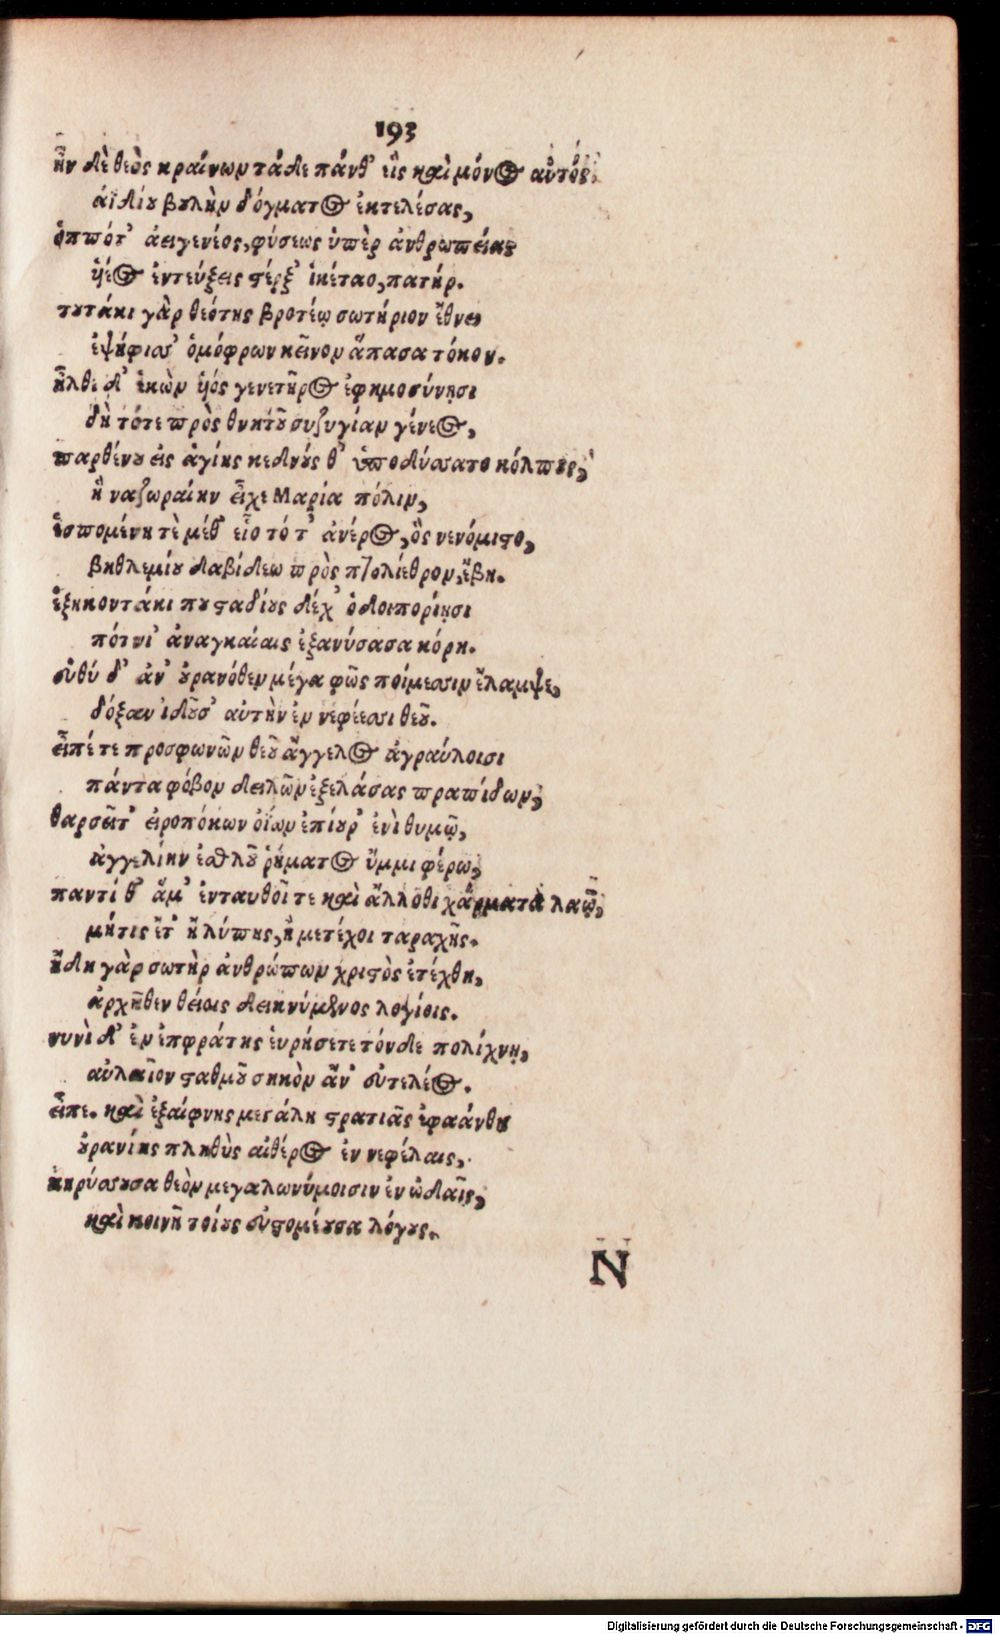 193
ἦν δὲ θεὸς κραίνων τάδε πάνθ' εἷς καὶ μόνος αὐτός,
ἀϊδίου βουλὴν δόγματος ἐκτελέσας,
ὁππότ' ἀειγενέος, φύσεως ὑπὲρ ἀνθρωπείας
υἱέος ἐντεύξεις στέρξ' ἱκέταο, πατήρ.
τουτάκι γὰρ θεότης βροτέῳ σωτήριον ἔθνει
ἐψήφισ' ὁμόφρων κεῖνον ἅπασα τόκον.
ἦλθε δ' ἑκὼν υἱὸς γενετῆρος ἐφημοσύνῃσι
δὴ τότε πρὸς θνητοῦ συζυγίαν γένεος,
παρθένου εἰς ἁγίης κεδνούς θ' ὑποδύσατο κόλπους,
ἣ ναζωραίην εἶχε Μαρία πόλιν,
ἑσπομένη τὲ μέθ' εἷο τό τ' ἀνέρος, ὃς νενόμιστο,
βηθλεμίου δαβίδεω πρὸς πτολίεθρον, ἔβη.
ἑξηκοντάκι που σταδίους δέχ' ὁδοιπορίῃσι
πότνι' ἀναγκαίαις ἐξανύσασα κόρη.
εὐθύ δ' ἀν' οὐρανόθεν μέγα φῶς ποίμεσιν ἔλαμψε,
δόξαν ἰδοῦσ' αὐτὴν ἐν νεφέεσσι θεοῦ.
εἶπέ τε προσφωνῶν θεοῦ ἄγγελος ἀγραύλοισι
πάντα φόβον δειλῶν ἐξελάσας πραπίδων,
θαρσεῖτ' εἰροπόκων οἴων ἐπίουρ' ἐνὶ θυμῷ,
ἀγγελίην ἐσθλοῦ ῥήματος ὔμμι φέρω,
παντί θ' ἅμ' ἐνταυθοῖ τε καὶ ἄλλοθι χάρματα λαῷ,
μήτις ἔτ' ἢ λύπης, ἢ μετέχοι ταραχῆς.
ἤδη γὰρ σωτὴρ ἀνθρώπων χριστὸς ἐτέχθη,
ἀρχῆθεν θείοις δεικνύμενος λογίοις.
νυνὶ δ' ἐν ἐπφράτης εὑρήσετε τόνδε πολίχνῃ,
αὐλαῖον σταθμοῦ σηκὸν ἀν' εὐτελέος.
εἶπε. καὶ ἐξαίφνης μεγάλη στρατιᾶς ἐφαάνθη
οὐρανίης πληθὺς αἰθέρος ἐν νεφέλαις,
κηρύσσουσα θεὸν μεγαλωνύμοισιν ἐν ᾠδαῖς,
καὶ κοινῇ τοίους εὐστομέουσα λόγους.
N
Digitalisierung gefördert durch die Deutsche Forschungsgemeinschaft - DFG